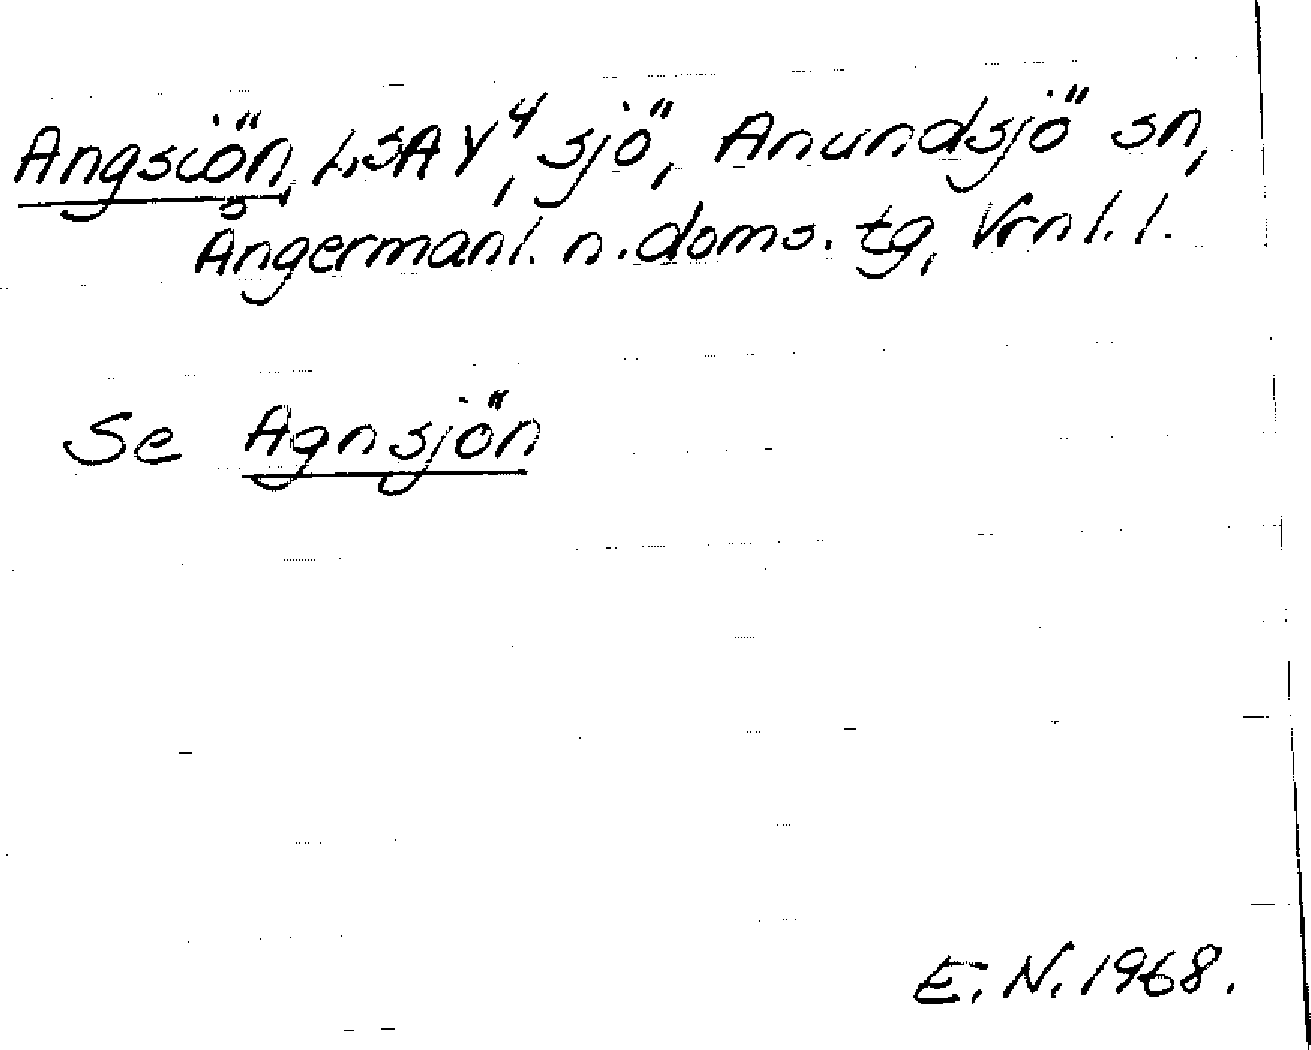 Angsiön, LSA Y4, sjö, Anundsjö sn,
Ångermanl. n. doms. tg, Vrnl. l.
Se Agnsjön
E. N. 1968.